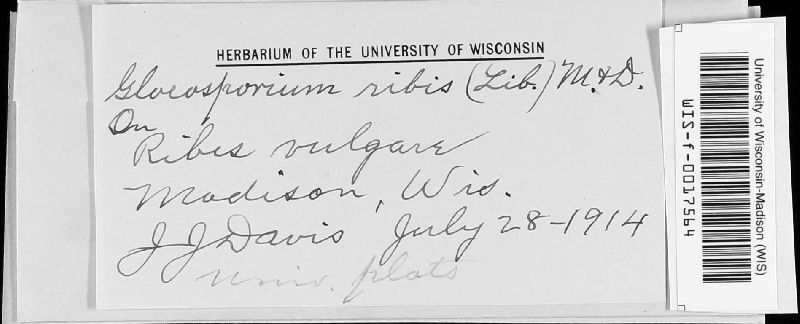 HERBARIUM OF THE UNIVERSITY OF WISCONSIN
Gloeosporium ribis (Lib.) M.&D.
On
Ribes vulgare
Madison, Wis.
J J Davis July 28-1914
univ. plats
University of Wisconsin-Madison (WIS)
WIS-f-0017564